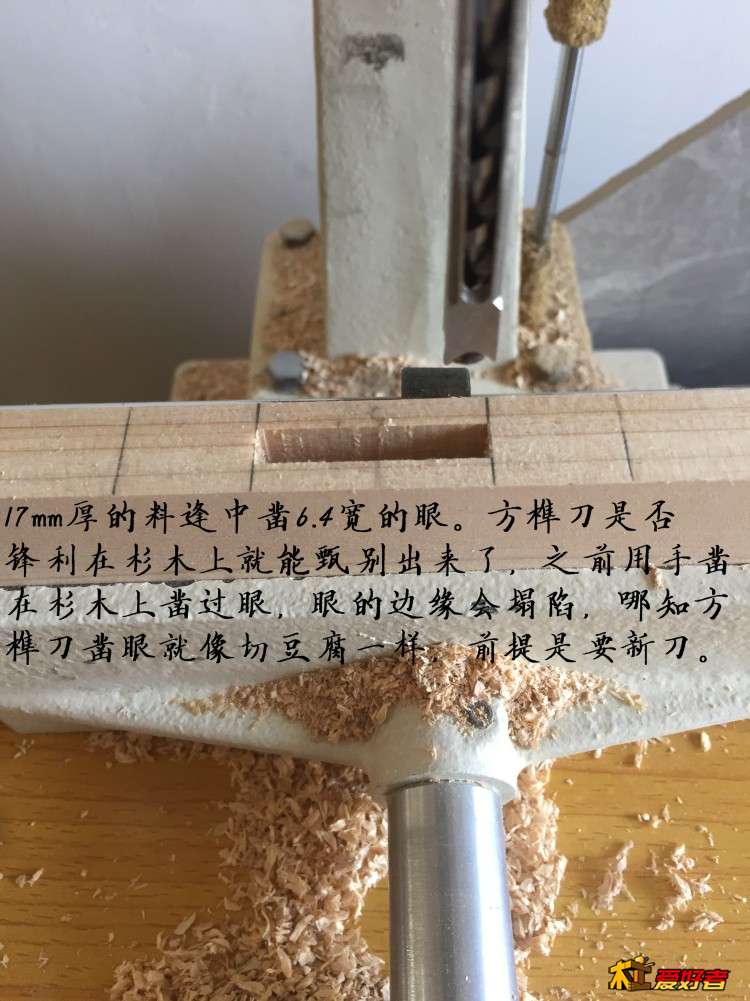 17mm厚的料逢中凿6.4宽的眼。方榫刀是否
锋利在杉木上就能甄别出来了，之前用手凿
在杉木上凿过眼，眼的边缘会塌陷，哪知方
榫刀凿眼就像切豆腐一样，前提是要新刀。
木工爱好者